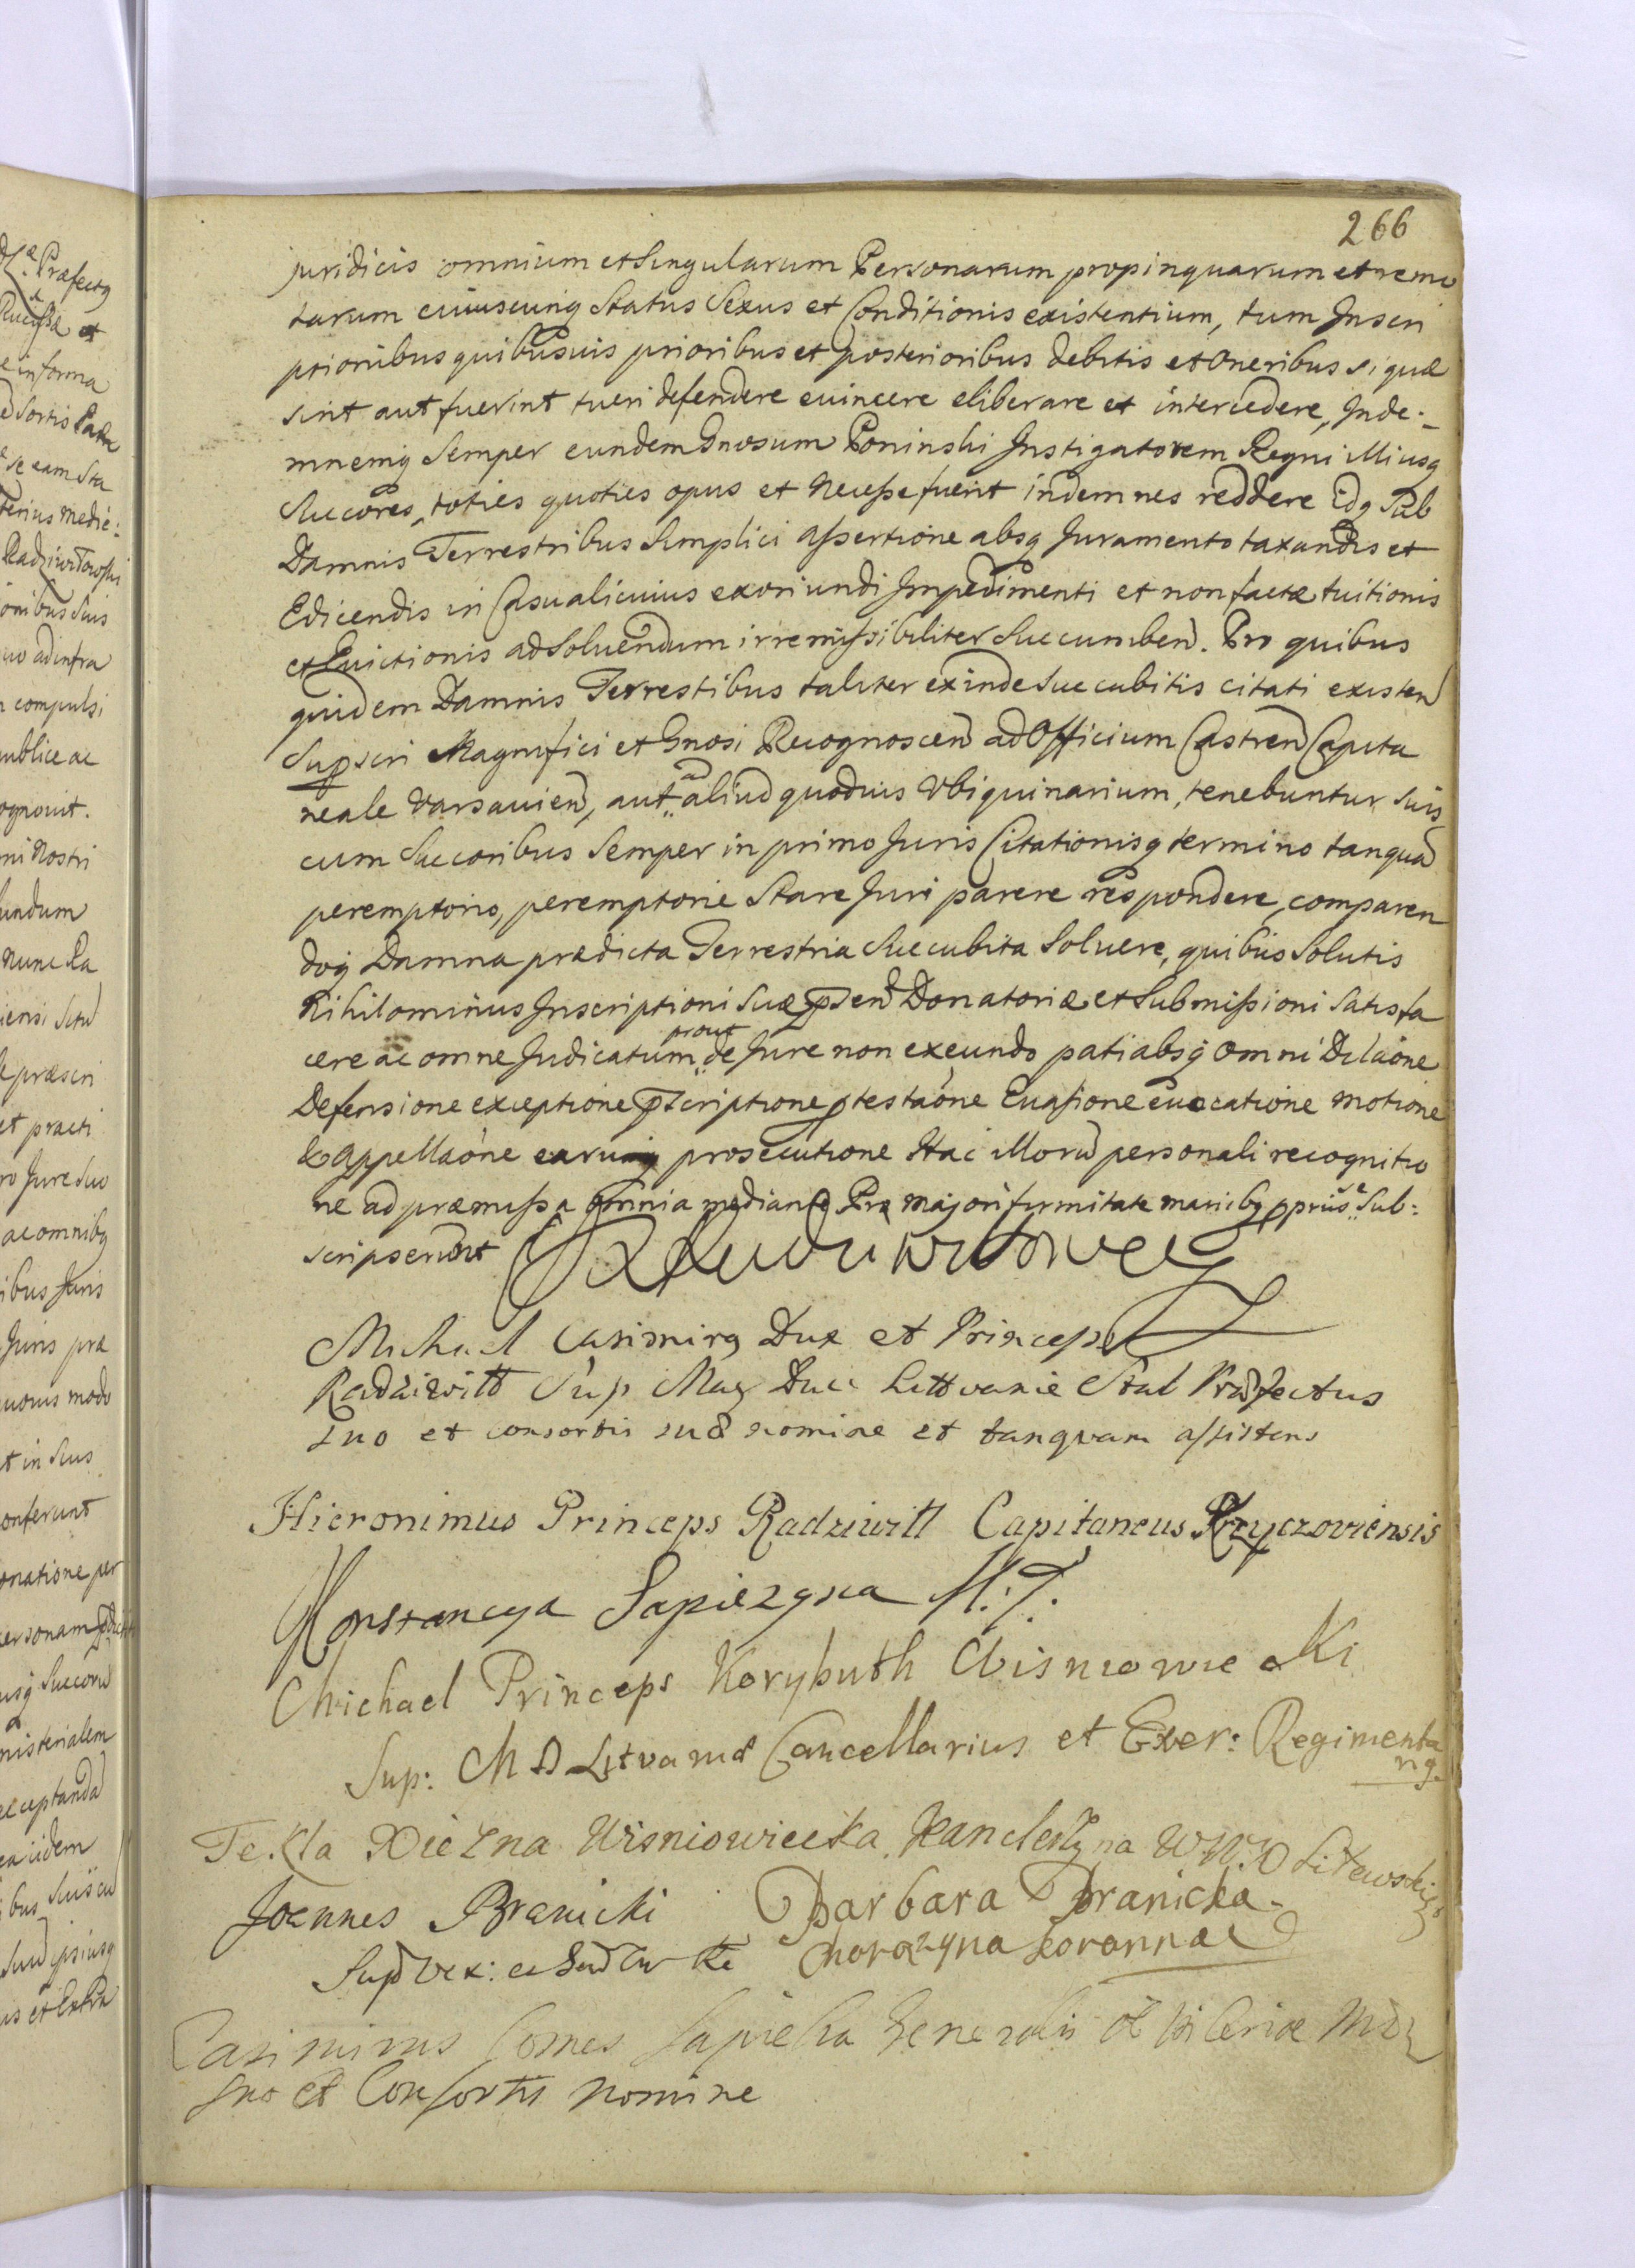 266
juridicis omnium et Singularum Personarum propinquarum et remo
tarum cuiuscunq Status Sexus et Conditionis existentium, tum Inscri
ptionibus quibusuis prioribus et posterioribus debitis et Oneribus si quæ
sint aut fuerint tueri defendere euincere eliberare et intercedere, Inde-
mnemq Semper eundem Gnosum Poninski Instigatorem Regni illiusq
Succores, toties quoties opus et Necesse fuerit indemnes reddere Idq Sub
Damnis Terrestribus Simplici assertione absq Juramento taxandis et
Edicendis in Casu alicuius exoriundi Impedimenti et non factæ tuitionis
et Euictionis ad Soluendum irremissibiliter Succumben. Pro quibus
quidem Damnis Terrestibus taliter exinde Succubitis citati existen
Supscri Magnifici et Gnosi Recognoscen ad Officium Castren Capita
neale Varsauien, aut ad aliud quoduis Vbiquinarium, tenebuntur Suis
cum Succoribus Semper in primo Juris Citationisq termino tanqua
peremptorio, peremptorie Stare Juri parere respondere, comparen
doq Damna prædicta Terrestria Succubita Soluere, quibus Solutis
Nihilominus Inscriptioni Suæ pnsen Donatoriæ et Submissioni Satisfa
cere ac omne Judicatum prout de Jure non exeundo pati absq omni Dilaone
Defensione exceptione pscriptione ptestaone Euasione euocatione motione
& appellaone earumq prosecutione Hac illorum personali recognitio
ne ad præmissa omnia mediante Pro majori firmitate manibq pprijs se Sub:
scripserunt
Michael Casimirq Dux et Princeps
Radziwill Sup Mag Duc Littvanie Stab Præfectus
Suo et consortis suæ nomine et tanquam assistens
Hieronimus Princeps Radziwill Capitaneus Krzyczoviensis
Konstancya Sapiezyna
Michael Princeps Korybuth Wisniowiecki
Sup: M D Litvaniæ Cancellarius et Exer: Regimenta
rig.
Tekla Xiezna Wisniowiecka Kanclerzyna W W X Litewskiego
Joannes Branicki Barbara Branicka
Chorązyna Koronna
Casimirus Comes Sapieha Generalis
suo et Consortis nomine